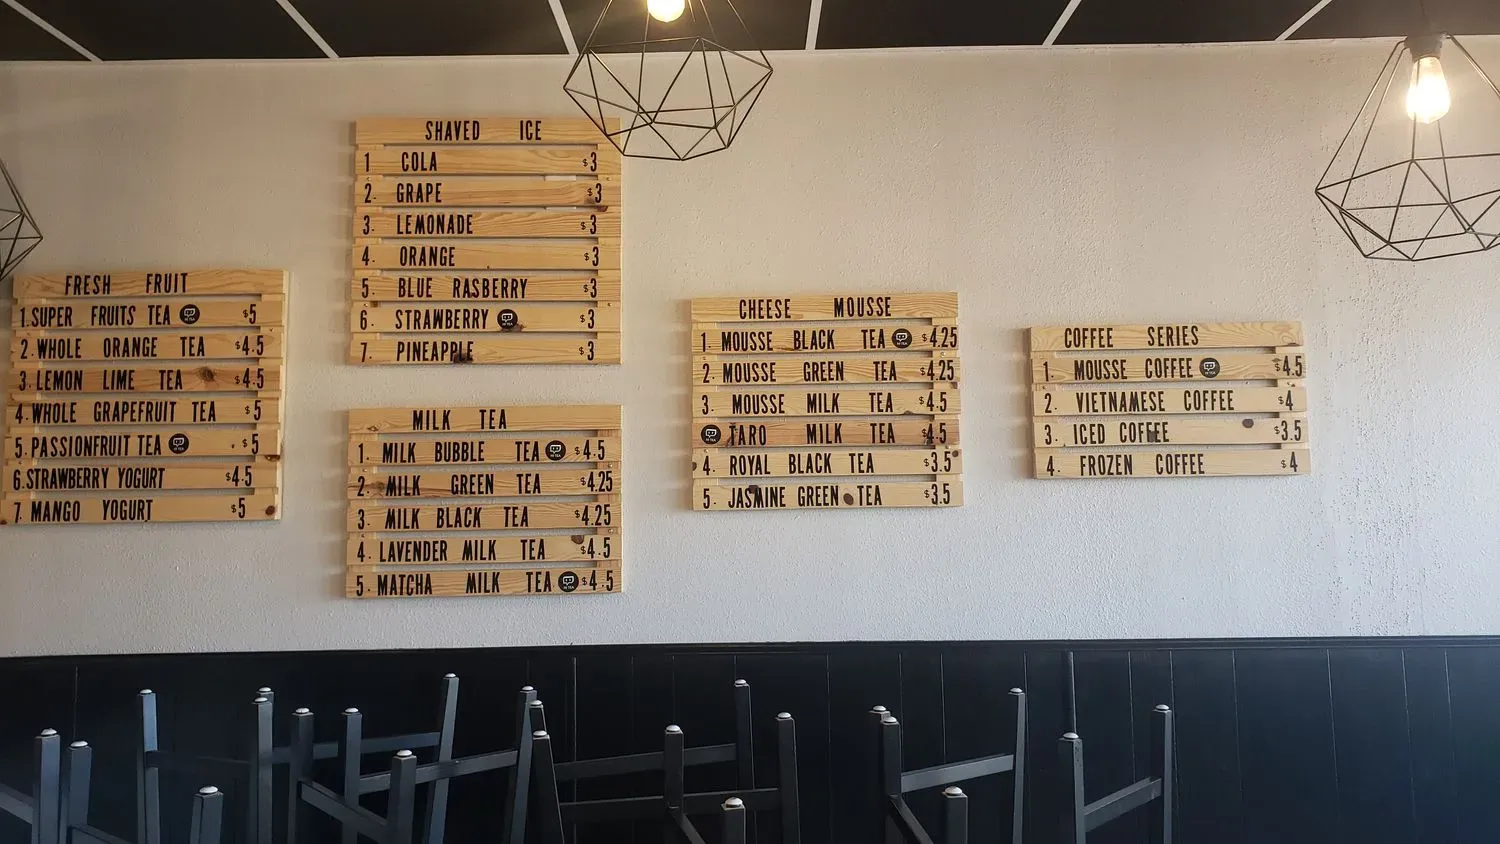 FRESH FRUIT
1. SUPER FRUITS TEA $5
2. WHOLE ORANGE TEA $4.5
3. LEMON LIME TEA $4.5
4. WHOLE GRAPEFRUIT TEA $5
5. PASSIONFRUIT TEA $5
6. STRAWBERRY YOGURT $4.5
7. MANGO YOGURT $5
SHAVED ICE
1 COLA $3
2. GRAPE $3
3. LEMONADE $3
4. ORANGE $3
5. BLUE RASBERRY $3
6. STRAWBERRY $3
7. PINEAPPLE $3
MILK TEA
1. MILK BUBBLE TEA $4.5
2. MILK GREEN TEA $4.25
3. MILK BLACK TEA $4.25
4. LAVENDER MILK TEA $4.5
5. MATCHA MILK TEA $4.5
CHEESE MOUSSE
1. MOUSSE BLACK TEA $4.25
2. MOUSSE GREEN TEA $4.25
3. MOUSSE MILK TEA $4.5
TARO MILK TEA $4.5
4. ROYAL BLACK TEA $3.5
5. JASMINE GREEN TEA $3.5
COFFEE SERIES
1. MOUSSE COFFEE $4.5
2. VIETNAMESE COFFEE $4
3. ICED COFFEE $3.5
4. FROZEN COFFEE $4